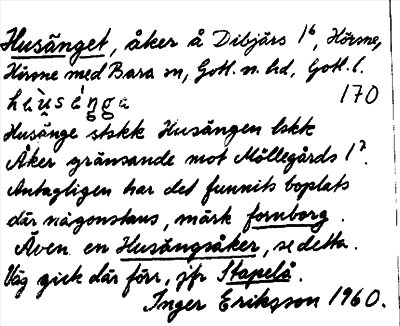 Husänget, åker å Dibjärs 1⁶, Hörsne,
Hörsne med Bara sn, Gotl. n. hd, Gotl. l.
170
Husänge stskk Husängen bskk
Åker gränsande mot Möllegårds 1².
Antagligen har det funnits boplats
där någonstans, märk fornborg.
Även en Husängsåker, se detta.
Väg gick där förr, jfr Stapelå.
Inger Eriksson 1960.